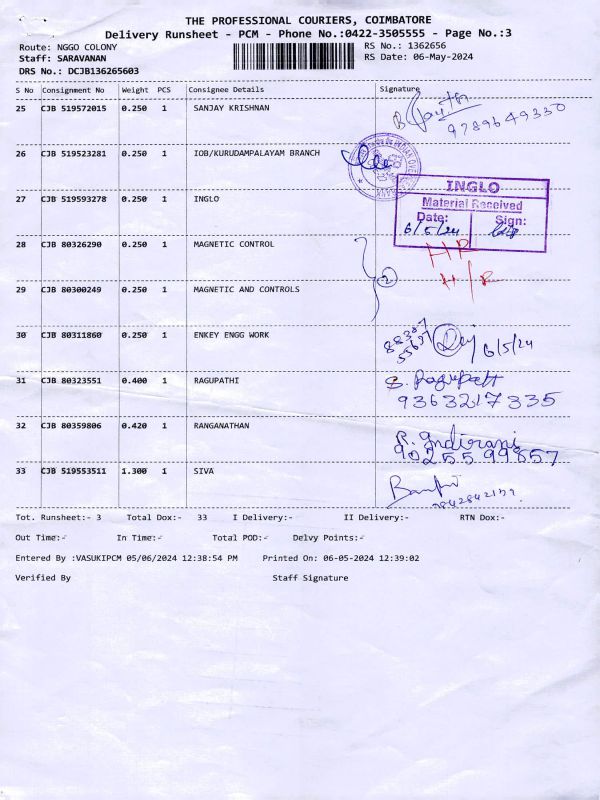 THE PROFESSIONAL COURIERS, COIMBATORE
Delivery Runsheet - PCM - Phone No.:0422-3505555 - Page No.:3
Route: NGGO COLONY
RS No.: 1362656
Staff: SARAVANAN
RS Date: 06-May-2024
DRS No.: DCJB136265603
S No Consignment No Weight PCS Consignee Details Signature
25 CJB 519572015 0.250 1 SANJAY KRISHNAN
9789649330
26 CJB 519523281 0.250 1 IOB/KURUDAMPALAYAM BRANCH
27 CJB 519593278 0.250 1 INGLO
INGLO
Material Received
Date: Sign:
6/5/24
28 CJB 80326290 0.250 1 MAGNETIC CONTROL
2
29 CJB 80300249 0.250 1 MAGNETIC AND CONTROLS
30 CJB 80311860 0.250 1 ENKEY ENGG WORK
6/5/24
31 CJB 80323551 0.400 1 RAGUPATHI
9363217335
32 CJB 80359806 0.420 1 RANGANATHAN
R. Indirani
9025599857
33 CJB 519553511 1.300 1 SIVA
Tot. Runsheet:- 3 Total Dox:- 33 I Delivery:- II Delivery:- RTN Dox:-
Out Time:- In Time:- Total POD:- Delvy Points:-
Entered By :VASUKIPCM 05/06/2024 12:38:54 PM Printed On: 06-05-2024 12:39:02
Verified By Staff Signature